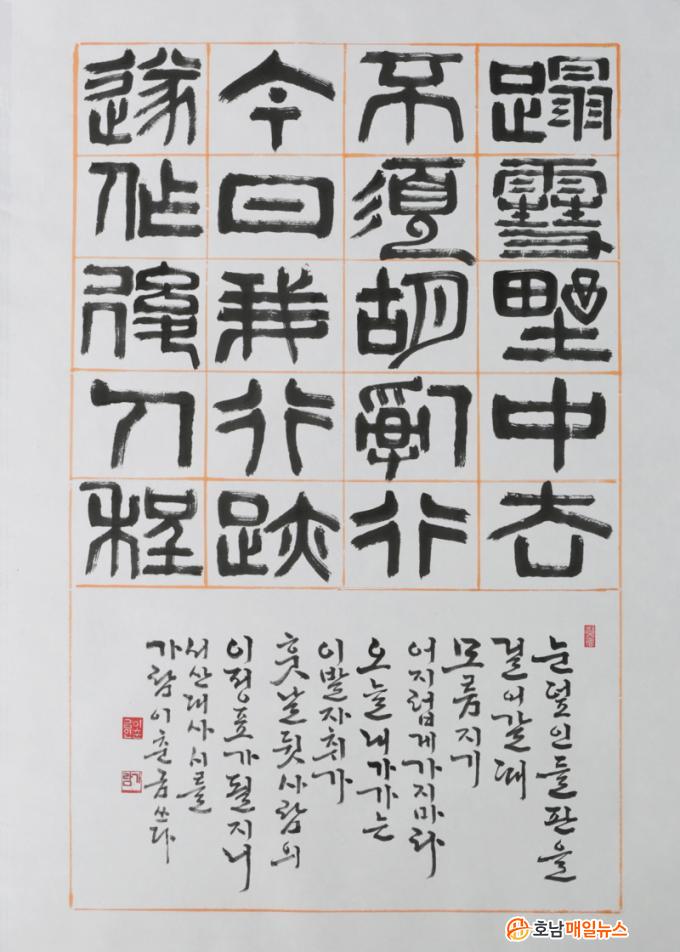 蹋雪野中去
不須胡亂行
今日我行跡
遂作後人程
눈덮인들판을
걸어갈때
모름지기
어지럽게가지마라
오늘내가가는
이발자취가
훗날뒷사람의
이정표가될지니
서산대사시를
가람이춘금쓰다
이춘금인
가람
호남매일뉴스